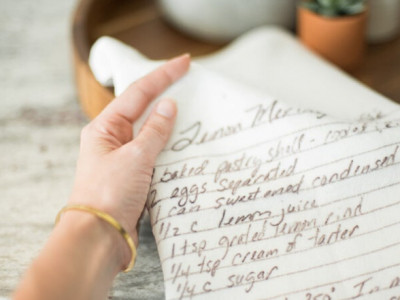 Lemon Mering
baked pastry shell -
2 eggs separated
1 can sweetened condensed
1/2 c lemon juice
1 tsp grated lemon rind
1/4 tsp cream of tarter
1/4 c sugar